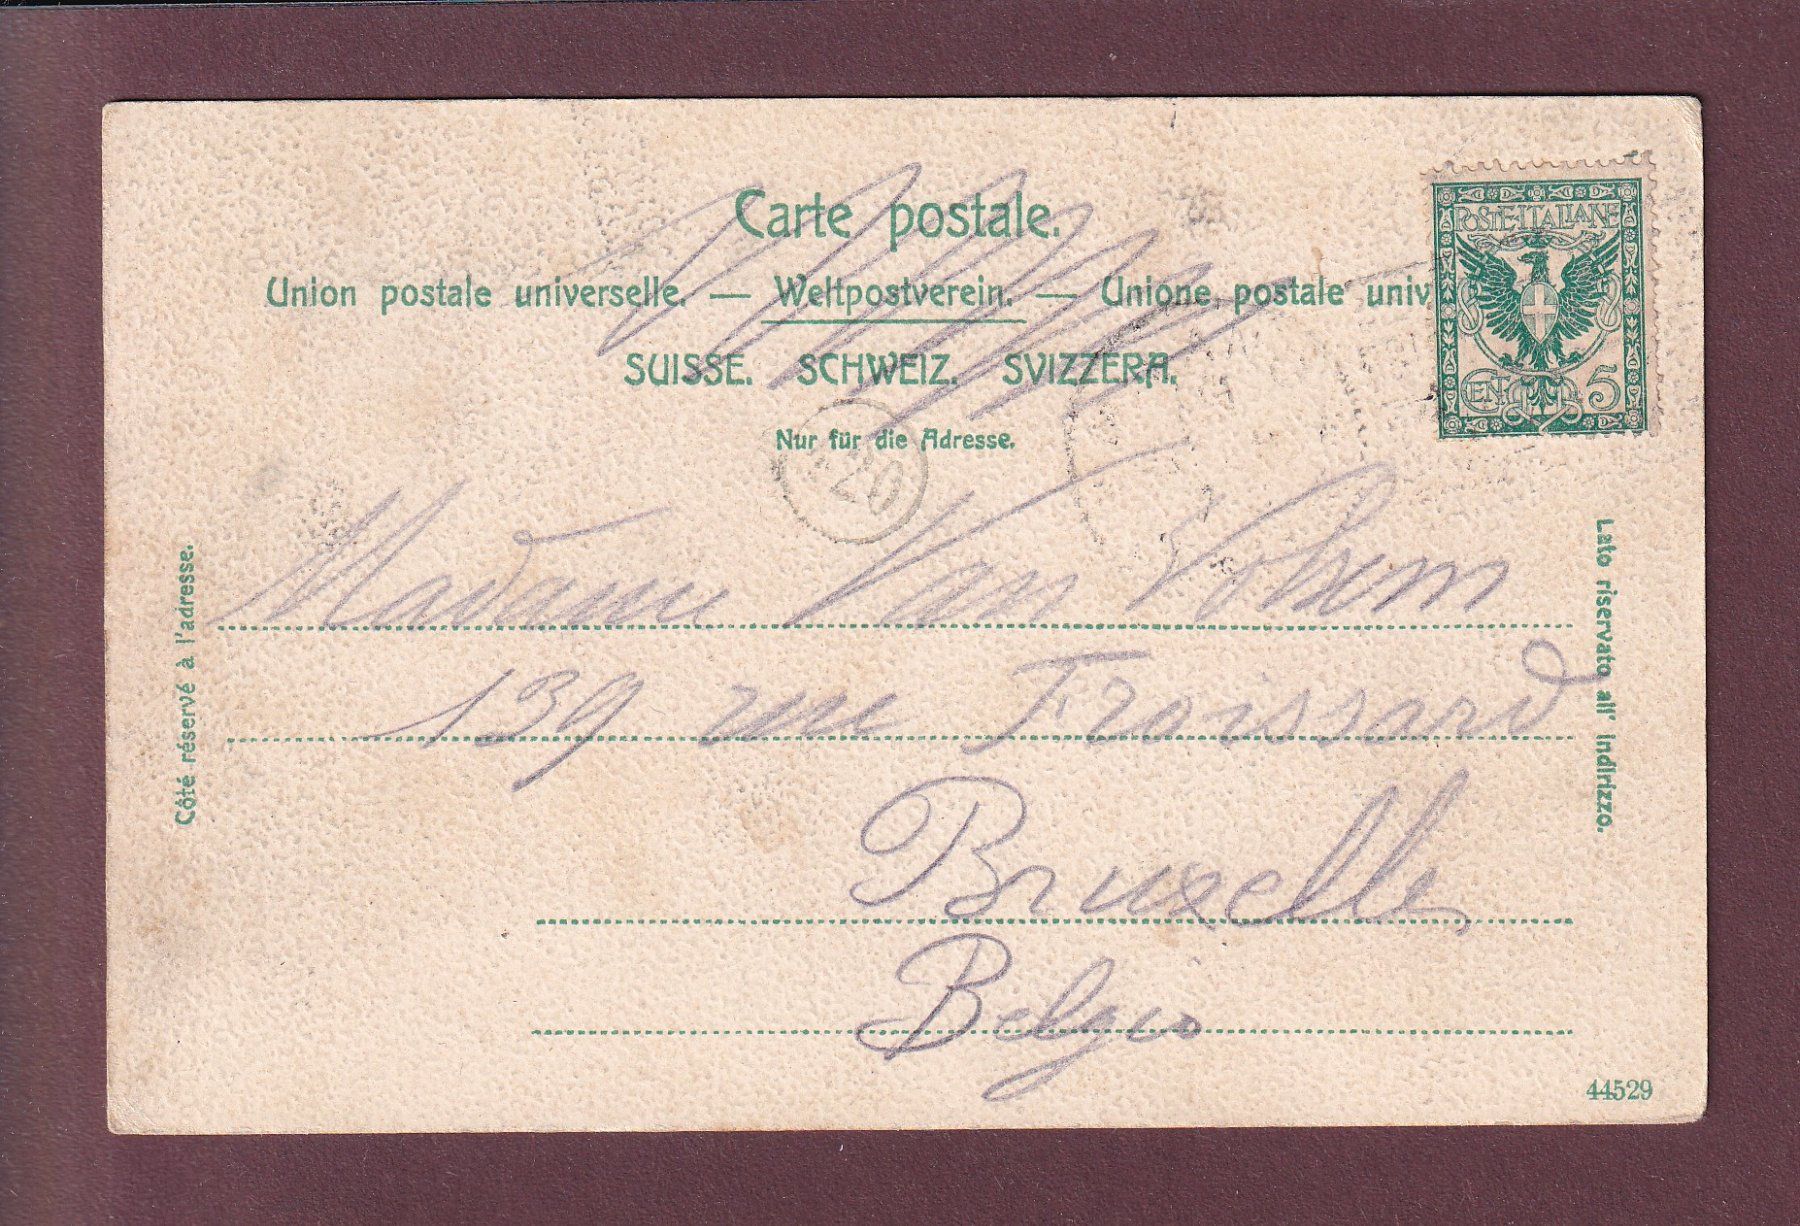 Carte postale.
Union postale universelle. — Weltpostverein. — Unione postale univ
SUISSE. SCHWEIZ. SVIZZERA.
Nur für die Adresse.
POSTE·ITALIANE
CEN. 5
20
Côté réservé à l'adresse.
Lato riservato all' indirizzo.
Madame Van Volxem
139 rue Froissard
Bruxelles
Belgio
44529